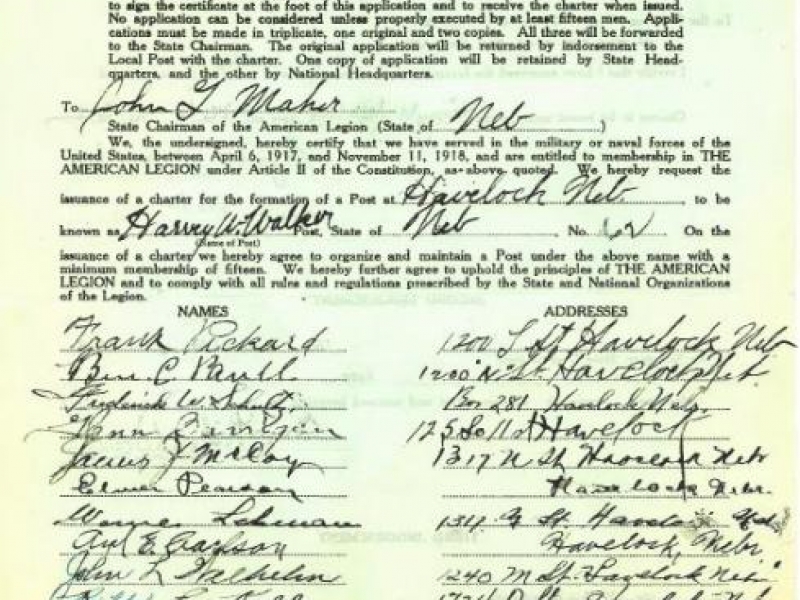 to sign the certificate at the foot of this application and to receive the charter when issued.
No application can be considered unless properly executed by at least fifteen men. Appli-
cations must be made in triplicate, one original and two copies. All three will be forwarded
to the State Chairman. The original application will be returned by indorsement to the
Local Post with the charter. One copy of application will be retained by State Head-
quarters, and the other by National Headquarters.
To John G Maher
State Chairman of the American Legion (State of Neb)
We, the undersigned, hereby certify that we have served in the military or naval forces of the
United States, between April 6, 1917, and November 11, 1918, and are entitled to membership in THE
AMERICAN LEGION under Article II of the Constitution, as above quoted. We hereby request the
issuance of a charter for the formation of a Post at Havelock Neb. to be
known as Harvey W. Walker Post, State of Neb No. 62 On the
(Name of Post)
issuance of a charter we hereby agree to organize and maintain a Post under the above name with a
minimum membership of fifteen. We hereby further agree to uphold the principles of THE AMERICAN
LEGION and to comply with all rules and regulations prescribed by the State and National Organizations
of the Legion.
NAMES ADDRESSES
Frank Pickard 1200 L St Havelock Neb
Ben C. 1200 N St. Havelock Neb
Frederick W. Schultz Box 281 Havelock Neb.
125 So 11 st Havelock
James J McCoy 1317 N St Havelock Neb
Elmer Pearson Havelock Nebr.
Lehman St. Havelock Neb
Carl E. Carlson Havelock, Nebr.
John L Wilhelm 1240 M St. Havelock Nebr